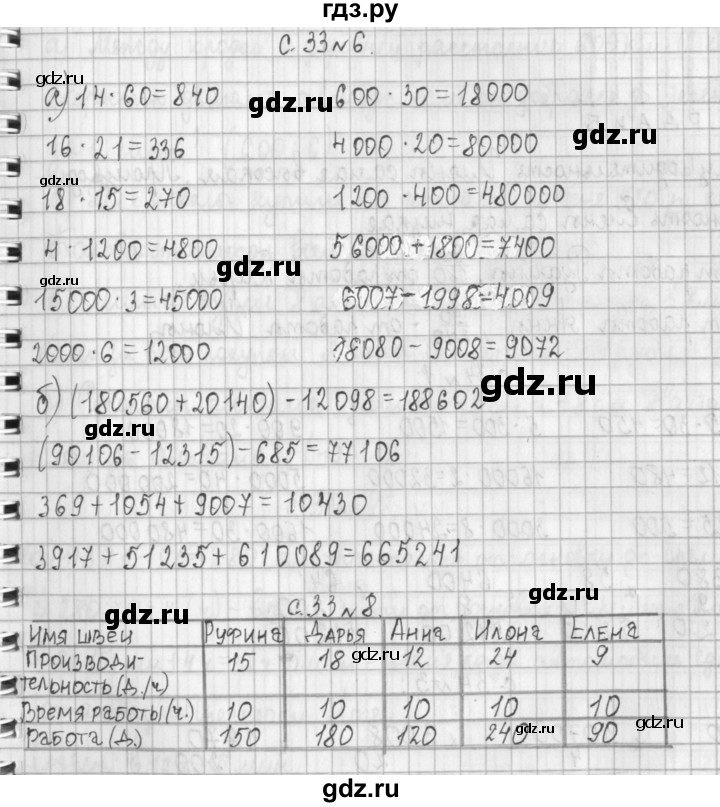 гдз.ру
С. 33 №6.
gdz.ru
а) 14 · 60 = 840 600 · 30 = 18000
gdz.ru
gdz.ru
16 · 21 = 336 4000 · 20 = 80000
gdz.ru
18 · 15 = 270 1200 · 400 = 480000
4 · 1200 = 4800 56000 + 1800 = 7400
gdz.ru
15000 · 3 = 45000 6007 - 1998 = 4009
2000 · 6 = 12000 18080 - 9008 = 9072
gdz.ru
б) (180560 + 20140) - 12098 = 188602
gdz.ru
(90106 - 12315) - 685 = 77106
369 + 1054 + 9007 = 10430
3917 + 51235 + 610089 = 665241
gdz.ru
с. 33 №8.
Имя швеи Руфина Дарья Анна Илона Елена
Производи- 15 18 12 24 9
gdz.ru
тельность (д./ч)
Время работы (ч.) 10 10 10 10 10
gdz.ru
gdz.ru
Работа (д.) 150 180 120 240 90
gdz.ru